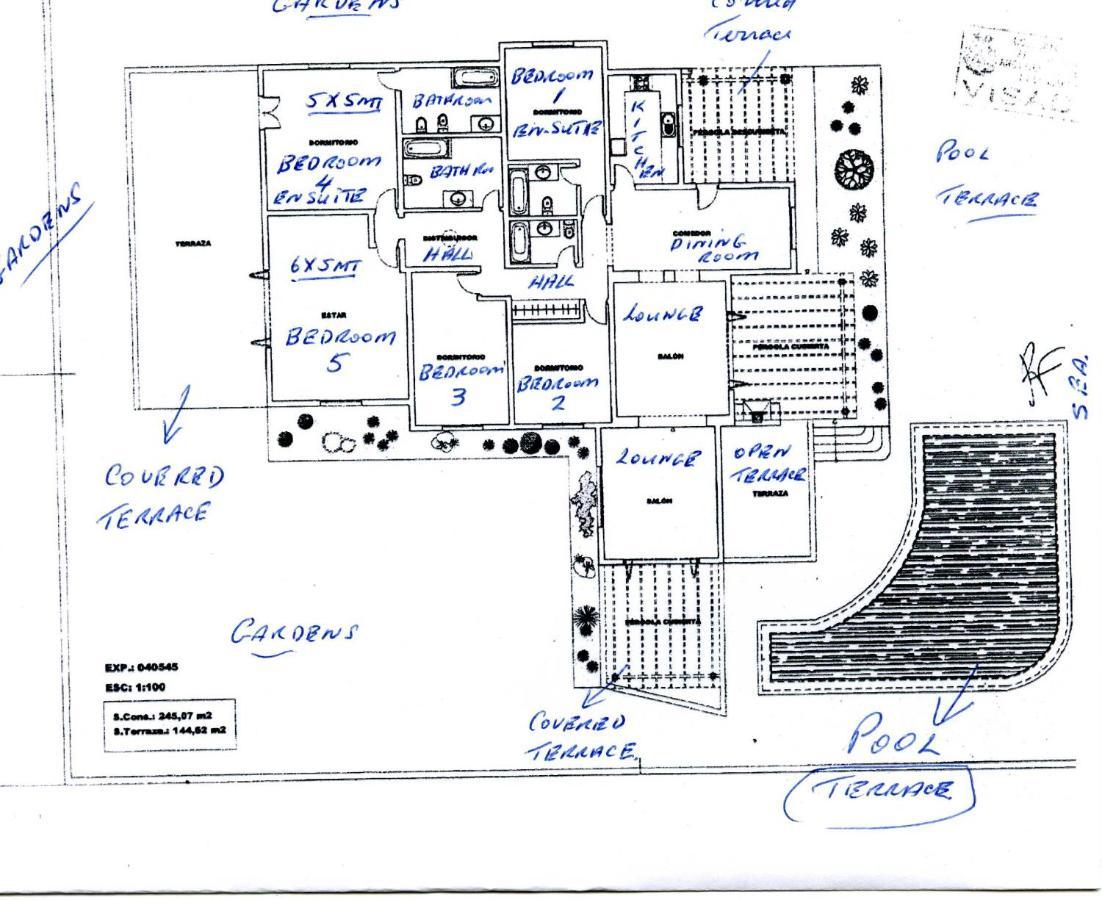 GARDENS
Terrace
VISADO
5 X 5MT
BATHROOM
BEDROOM
1
DORMITORIO
EN-SUITE
KITCHEN
PÉRGOLA DESCUBIERTA
POOL
TERRACE
DORMITORIO
BEDROOM
4
EN SUITE
BATH RM
GARDENS
TERRAZA
DISTRIBUIDOR
HALL
COMEDOR
DINING
ROOM
6 X 5MT
HALL
ESTAR
BEDROOM
5
LOUNGE
SALÓN
PÉRGOLA CUBIERTA
DORMITORIO
BEDROOM
3
DORMITORIO
BEDROOM
2
COVERED
TERRACE
LOUNGE
SALÓN
OPEN
TERRACE
TERRAZA
GARDENS
PÉRGOLA CUBIERTA
EXP.: 040545
ESC: 1:100
S.Cons.: 245,07 m2
S.Terraza.: 144,52 m2
COVERED
TERRACE
POOL
TERRACE